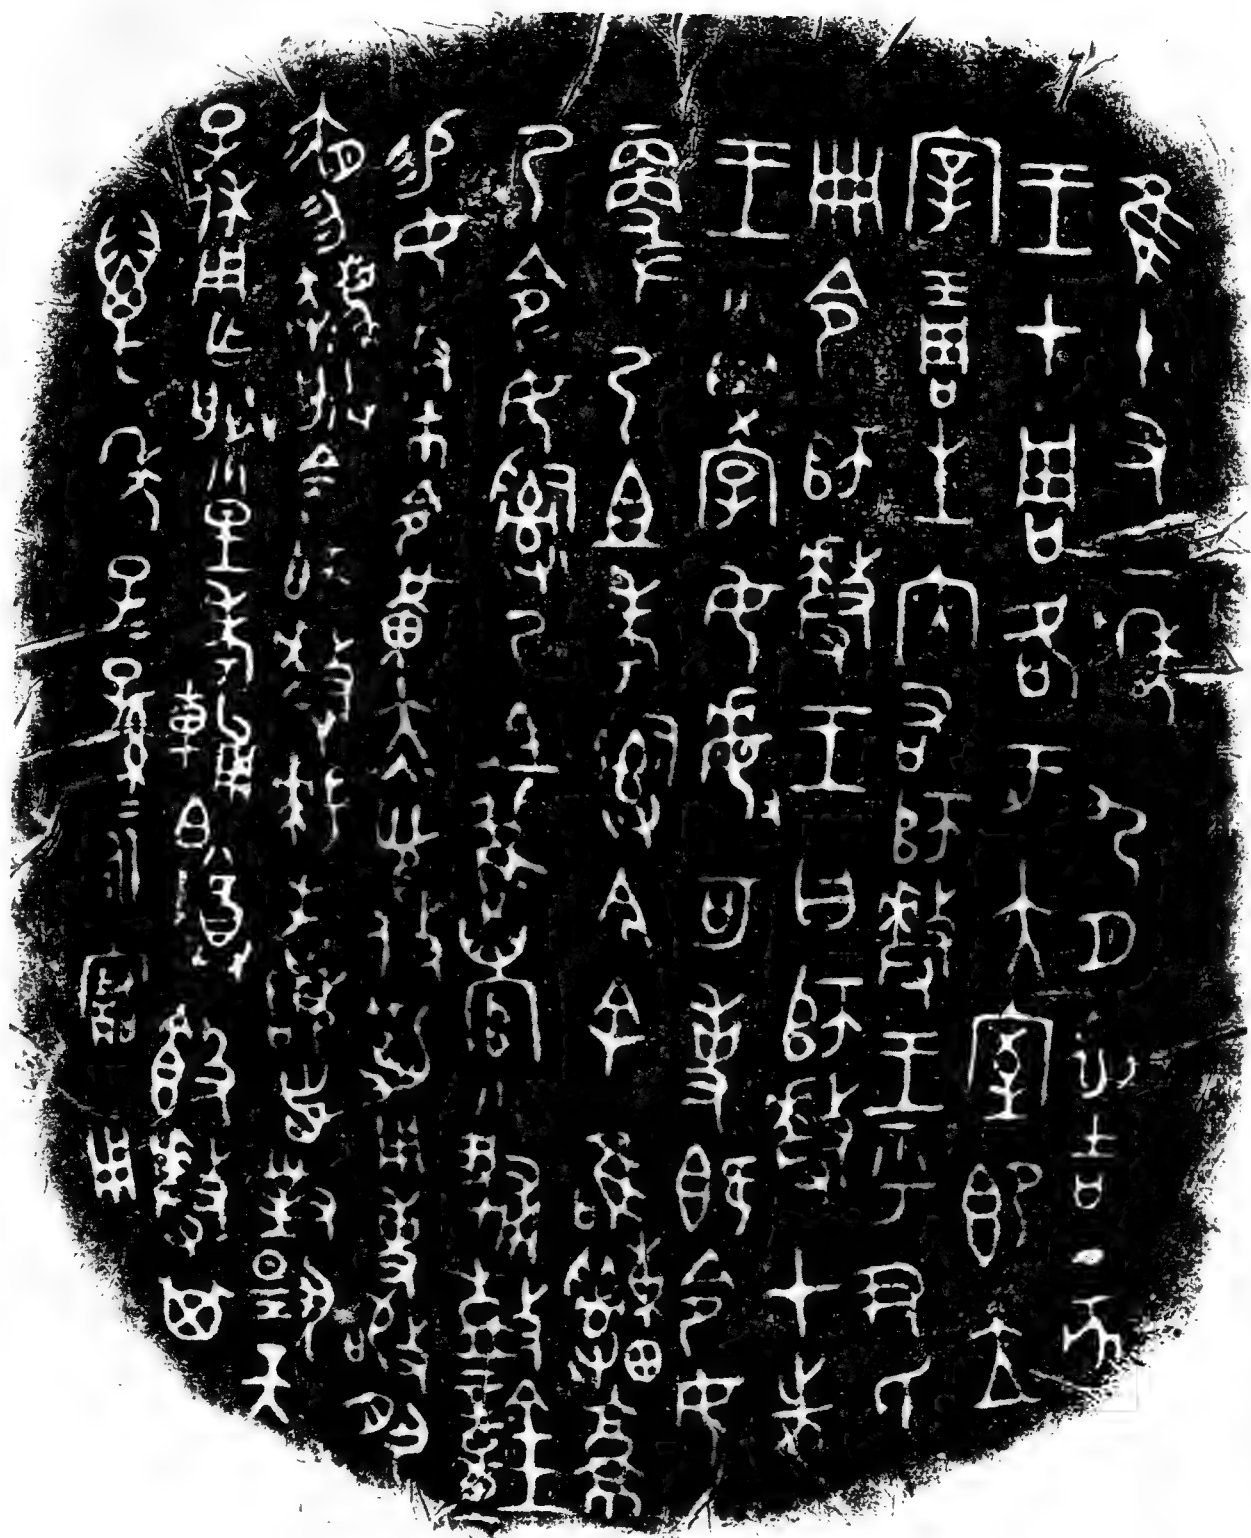 隹十又一年九月初吉丁亥
王才周各于大室即立
宰琱生內右師𠩺王乎尹氏
冊令師𠩺王曰師𠩺才先
王小學女女敏可事既令女
更乃且考𤔲今余唯𤕌𥃝
乃令令女𤔲乃且舊官小輔眔鼓鐘
易女叔市金黃赤舄攸勒用事敬夙
夜勿灋朕令師𠩺拜手𩒨首敢對揚天
子休用乍朕皇考輔白尊簋𠩺其
萬年子子孫孫永寶用